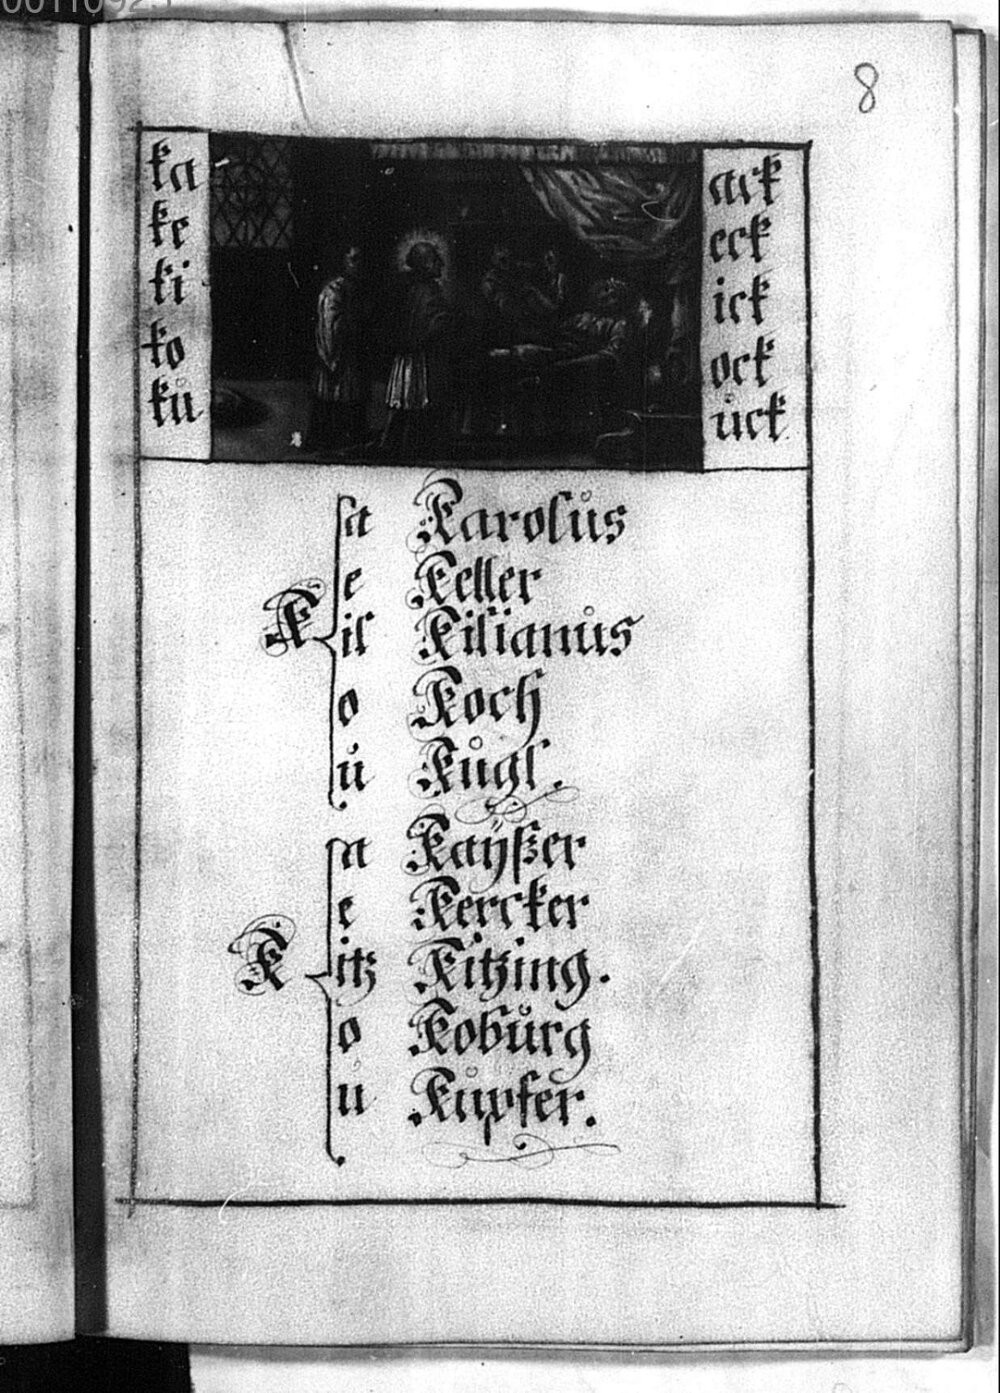 8
ka
ke
ki
ko
ků
ack
eck
ick
ock
ůck
a Karolůs
e Keller
K il Kilianůs
o Koch
ů Kůgl.
a Kaÿßer
e Kercker
K itz Kitzing.
o Kobůrg
ů Kůpfer.